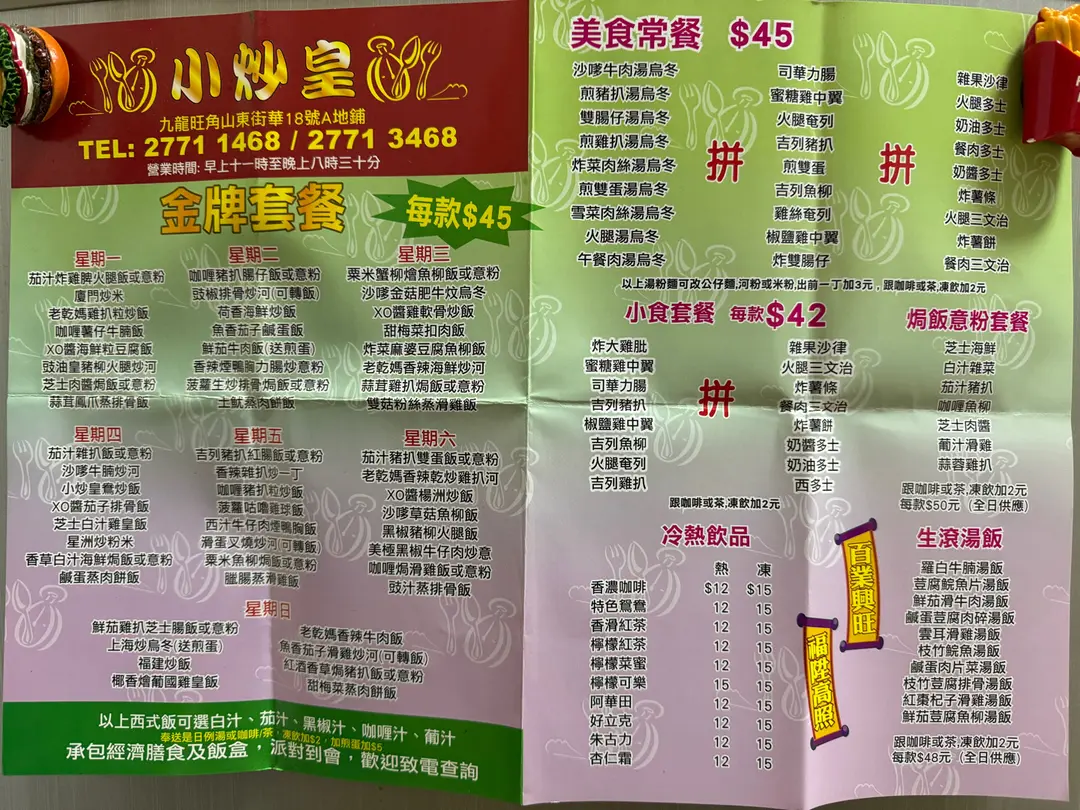 小炒皇
九龍旺角山東街華18號A地鋪
TEL: 2771 1468 / 2771 3468
營業時間: 早上十一時至晚上八時三十分
金牌套餐
每款$45
星期一
茄汁炸雞脾火腿飯或意粉
廈門炒米
老乾媽雞扒粒炒飯
咖喱薯仔牛腩飯
XO醬海鮮粒豆腐飯
豉油皇豬柳火腿炒河
芝士肉醬焗飯或意粉
蒜茸鳳爪蒸排骨飯
星期二
咖喱豬扒腸仔飯或意粉
豉椒排骨炒河(可轉飯)
荷香海鮮炒飯
魚香茄子鹹蛋飯
鮮茄牛肉飯(送煎蛋)
香辣煙鴨胸力腸炒意粉
菠蘿生炒排骨焗飯或意粉
土魷蒸肉餅飯
星期三
粟米蟹柳燴魚柳飯或意粉
沙嗲金菇肥牛炆烏冬
XO醬雞軟骨炒飯
甜梅菜扣肉飯
炸菜麻婆豆腐魚柳飯
老乾媽香辣海鮮炒河
蒜茸雞扒焗飯或意粉
雙菇粉絲蒸滑雞飯
星期四
茄汁雜扒飯或意粉
沙嗲牛腩炒河
小炒皇鴦炒飯
XO醬茄子排骨飯
芝士白汁雞皇飯
星洲炒粉米
香草白汁海鮮焗飯或意粉
鹹蛋蒸肉餅飯
星期五
吉列豬扒紅腸飯或意粉
香辣雜扒炒一丁
咖喱豬扒粒炒飯
菠蘿咕嚕雞球飯
西汁牛仔肉煙鴨胸飯
滑蛋叉燒炒河(可轉飯)
粟米魚柳焗飯或意粉
臘腸蒸滑雞飯
星期六
茄汁豬扒雙蛋飯或意粉
老乾媽香辣乾炒雞扒河
XO醬楊洲炒飯
沙嗲草菇魚柳飯
黑椒豬柳火腿飯
美極黑椒牛仔肉炒意
咖喱焗滑雞飯或意粉
豉汁蒸排骨飯
星期日
鮮茄雞扒芝士腸飯或意粉
上海炒烏冬(送煎蛋)
福建炒飯
椰香燴葡國雞皇飯
老乾媽香辣牛肉飯
魚香茄子滑雞炒河(可轉飯)
紅酒香草焗豬扒飯或意粉
甜梅菜蒸肉餅飯
以上西式飯可選白汁、茄汁、黑椒汁、咖喱汁、葡汁
奉送是日例湯或咖啡/茶，凍飲加$2，加煎蛋加$5
承包經濟膳食及飯盒，派對到會，歡迎致電查詢
美食常餐 $45
沙嗲牛肉湯烏冬
煎豬扒湯烏冬
雙腸仔湯烏冬
煎雞扒湯烏冬
炸菜肉絲湯烏冬
煎雙蛋湯烏冬
雪菜肉絲湯烏冬
火腿湯烏冬
午餐肉湯烏冬
拼
司華力腸
蜜糖雞中翼
火腿奄列
吉列豬扒
煎雙蛋
吉列魚柳
雞絲奄列
椒鹽雞中翼
炸雙腸仔
拼
雜果沙律
火腿多士
奶油多士
餐肉多士
奶醬多士
炸薯條
火腿三文治
炸薯餅
餐肉三文治
以上湯粉麵可改公仔麵,河粉或米粉,出前一丁加3元，跟咖啡或茶,凍飲加2元
小食套餐 每款$42
炸大雞肶
蜜糖雞中翼
司華力腸
吉列豬扒
椒鹽雞中翼
吉列魚柳
火腿奄列
吉列雞扒
拼
雜果沙律
火腿三文治
炸薯條
餐肉三文治
炸薯餅
奶醬多士
奶油多士
西多士
跟咖啡或茶,凍飲加2元
焗飯意粉套餐
芝士海鮮
白汁雜菜
茄汁豬扒
咖喱魚柳
芝士肉醬
葡汁滑雞
蒜蓉雞扒
跟咖啡或茶,凍飲加2元
每款$50元 (全日供應)
冷熱飲品
熱 凍
香濃咖啡 $12 $15
特色鴛鴦 12 15
香滑紅茶 12 15
檸檬紅茶 12 15
檸檬菜蜜 12 15
檸檬可樂 15 15
阿華田 12 15
好立克 12 15
朱古力 12 15
杏仁霜 12 15
百業興旺
福陞高照
生滾湯飯
羅白牛腩湯飯
荳腐鯇魚片湯飯
鮮茄滑牛肉湯飯
鹹蛋荳腐肉碎湯飯
雲耳滑雞湯飯
枝竹鯇魚湯飯
鹹蛋肉片菜湯飯
枝竹荳腐排骨湯飯
紅棗杞子滑雞湯飯
鮮茄荳腐魚柳湯飯
跟咖啡或茶,凍飲加2元
每款$48元 (全日供應)